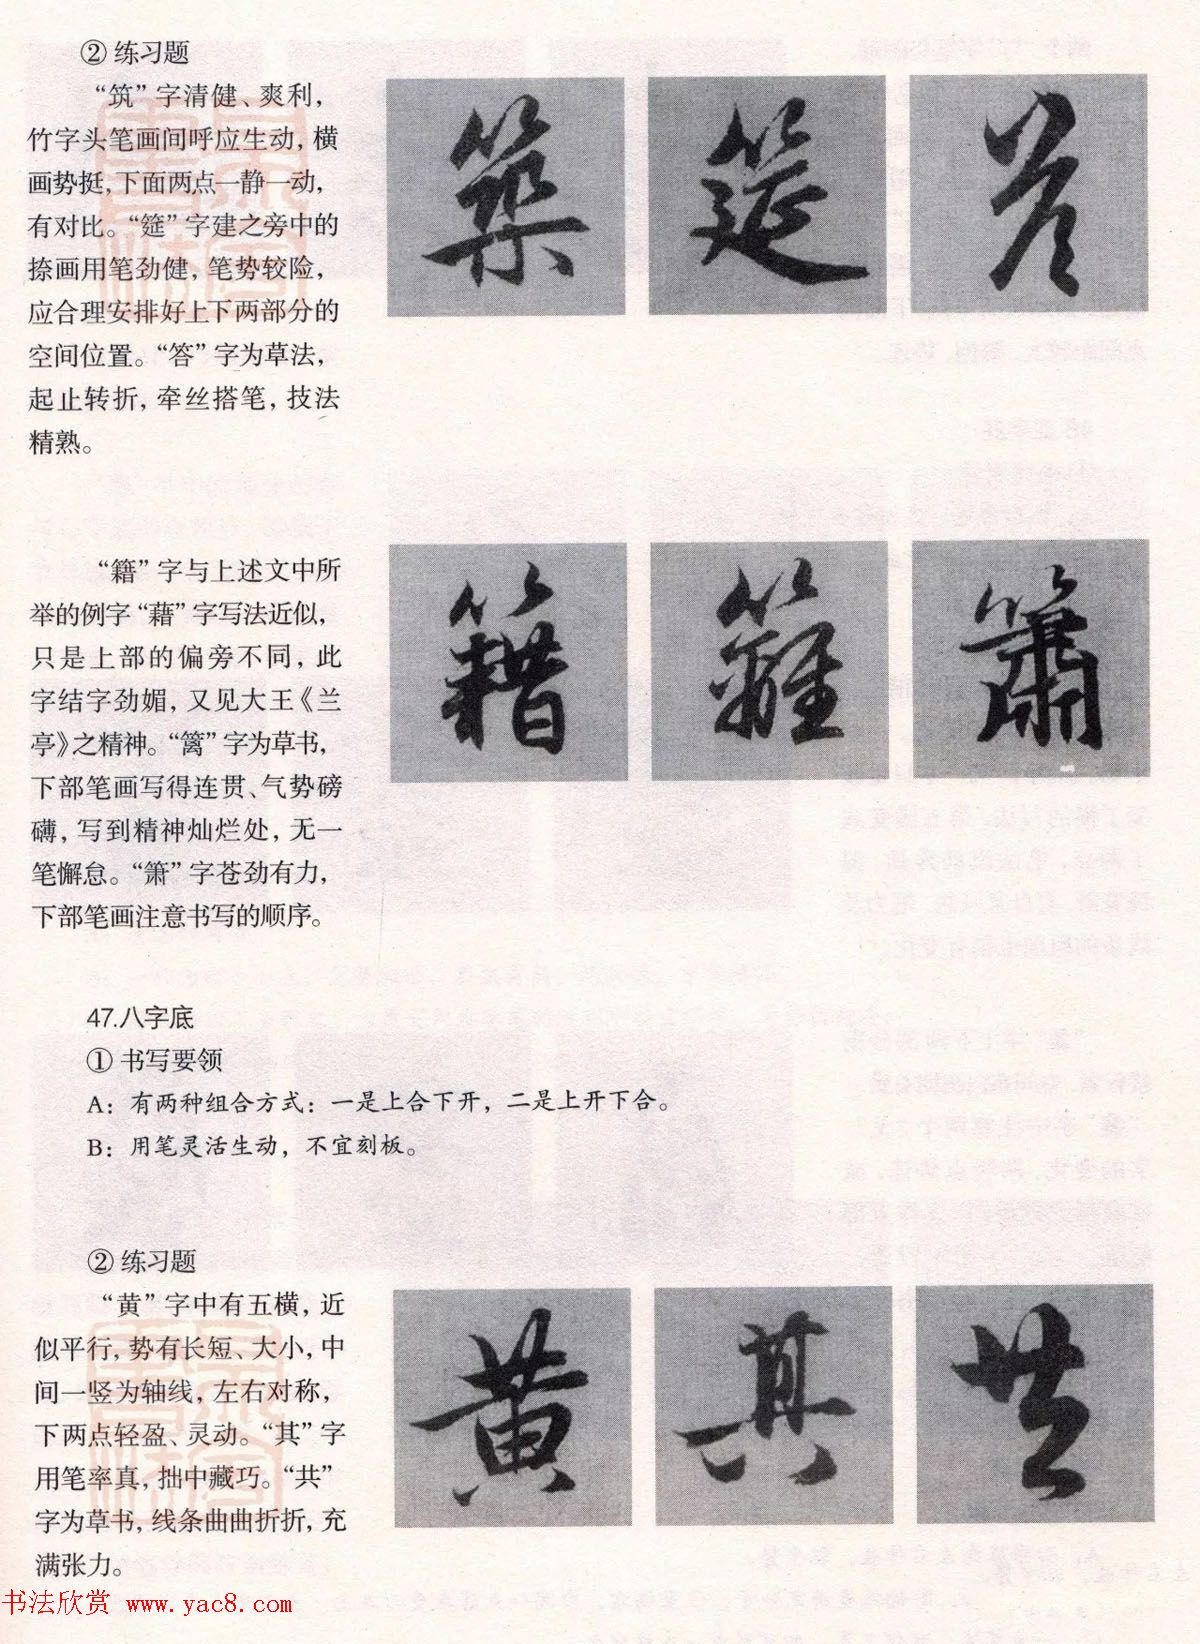 ② 练习题
“筑”字清健、爽利，
竹字头笔画间呼应生动，横
画势挺，下面两点一静一动，
有对比。“筵”字建之旁中的
捺画用笔劲健，笔势较险，
应合理安排好上下两部分的
空间位置。“答”字为草法，
起止转折，牵丝搭笔，技法
精熟。
築 筵 答
“籍”字与上述文中所
举的例字“藉”字写法近似，
只是上部的偏旁不同，此
字结字劲媚，又见大王《兰
亭》之精神。“篱”字为草书，
下部笔画写得连贯、气势磅
礴，写到精神灿烂处，无一
笔懈怠。“箫”字苍劲有力，
下部笔画注意书写的顺序。
籍 籬 簫
47.八字底
① 书写要领
A：有两种组合方式：一是上合下开，二是上开下合。
B：用笔灵活生动，不宜刻板。
② 练习题
“黄”字中有五横，近
似平行，势有长短、大小，中
间一竖为轴线，左右对称，
下两点轻盈、灵动。“其”字
用笔率真，拙中藏巧。“共”
字为草书，线条曲曲折折，充
满张力。
黄 其 共
书法欣赏 www.yac8.com